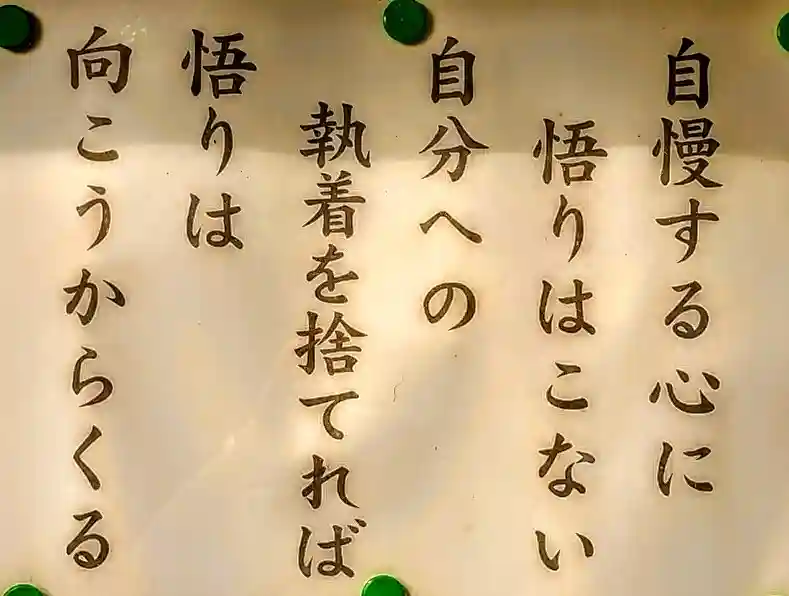 自慢する心に
悟りはこない
自分への
執着を捨てれば
悟りは
向こうからくる